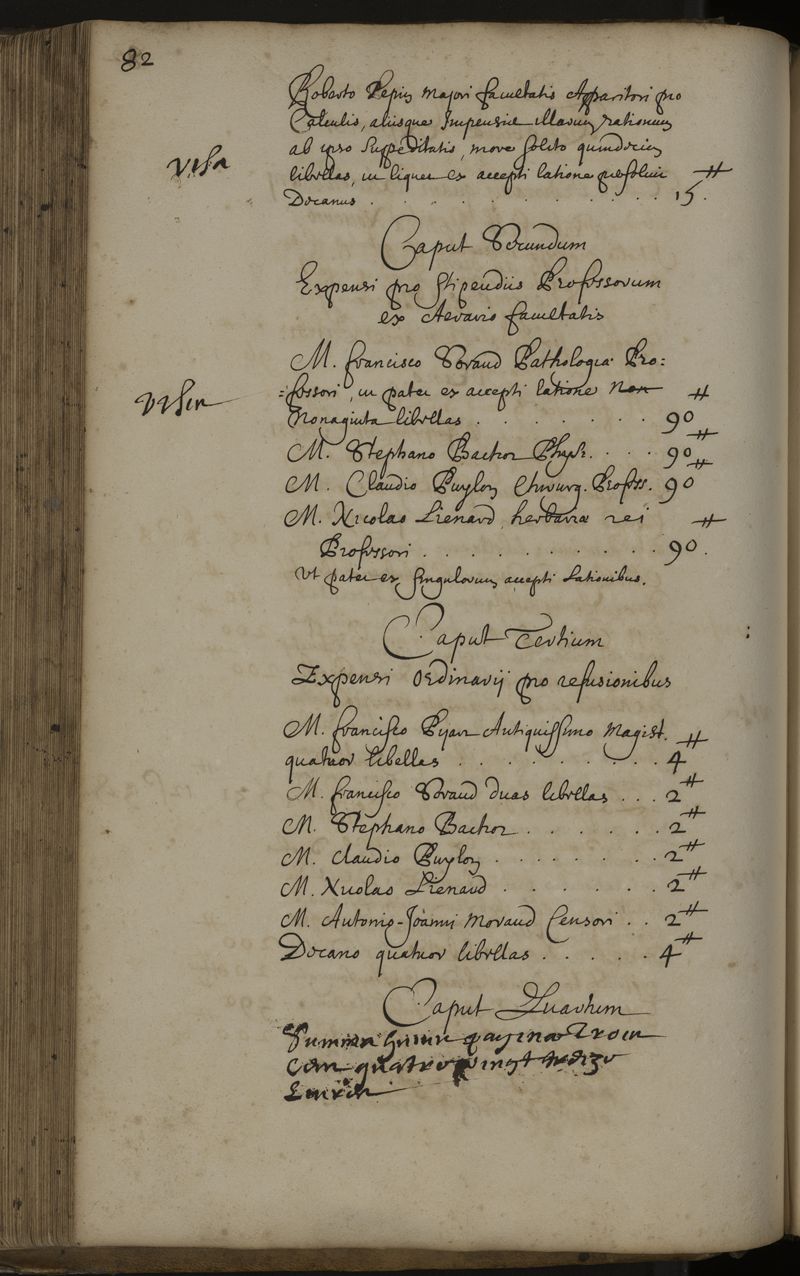 82
Roberto Pepin Majori facultatis Apparitori pro
Calculis, aliisque Impensis illarum rationum
ab ipso Suppeditatis, more solito quindecim
visa
libellas, ut liquet ex accepti latione persoluit
Decanus . . . . . . . . . . 15 ⁜.
Caput Secundum
Expensi pro stipendiis Professorum
ex Aerario facultatis
M. Francisco Pathologiae Pro=
visa
=fessori, ut patet ex accepti latione Non
Nonaginta libellas . . . . . . . 90 ⁜
M. Stephano Bachot Phys. . . . 90 ⁜
M. Claudio Puylon Chirurg. Profess. 90 ⁜
M. Nicolao Lienard, herbariae rei
Professori . . . . . . . . . . 90 ⁜.
Ut patet ex singulorum accepti lationibus.
Caput Tertium
Expensi Ordinarij pro refusionibus
M. Francisco Antiquissimo Magist.
quatuor libellas . . . . . . . . . 4 ⁜
M. Francisco duas libellas . . . 2 ⁜
M. Stephano Bachot . . . . . . 2 ⁜
M. Claudio Puylon . . . . . . . 2 ⁜
M. Nicolao Lienard . . . . . . 2 ⁜
M. Antonio-Joanni Morand Censori . . 2 ⁜
Decano quatuor libellas . . . . . 4 ⁜
Caput Quartum
Summa huius paginae Trois
Cent quatre vingt treize